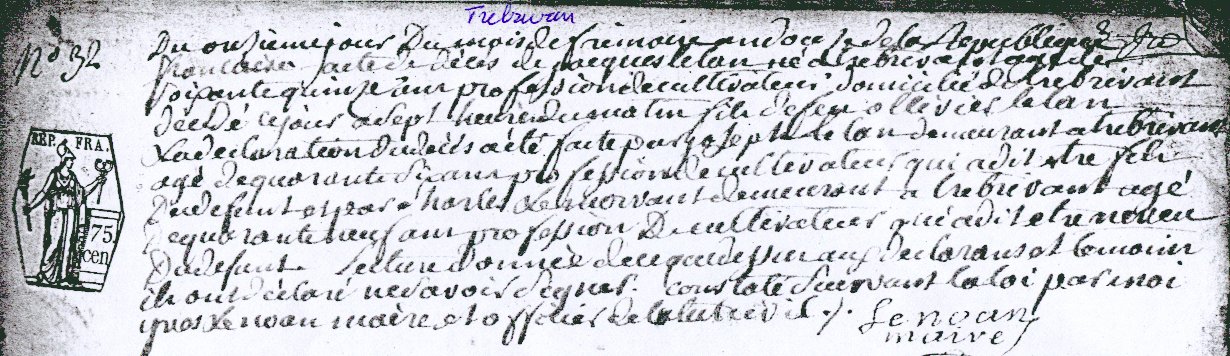 Trebrivan
N° 32
Du onzieme jour Du mois de frimaire an douze de la Republique
francaise acte de déces de jacques le lan né a trebrivant agé de
soixante quinze ans profession de cultivateur domicilié de trebrivant
décédé ce jour a sept heure du matin fils de feu ollivier le lan
La declaration du décés a été faite par joseph le lan demeurant a trebrivant
agé de quarante ans profession de cultivateur qui a dit etre fils
Du defunt et par charles le morvant demeurant a trebrivant agé
de quarante neuf ans profession De cultivateur qui a dit etre neveu
Du defunt. Lecture donnée de ce que dessus aux declarans et temoins
ils ont déclaré ne savoir signer. constaté suivant la loi par moi
yves Lenoan maire et officier de l'etat civil ./.
Lenoan
maire
REP. FRA.
75
cen